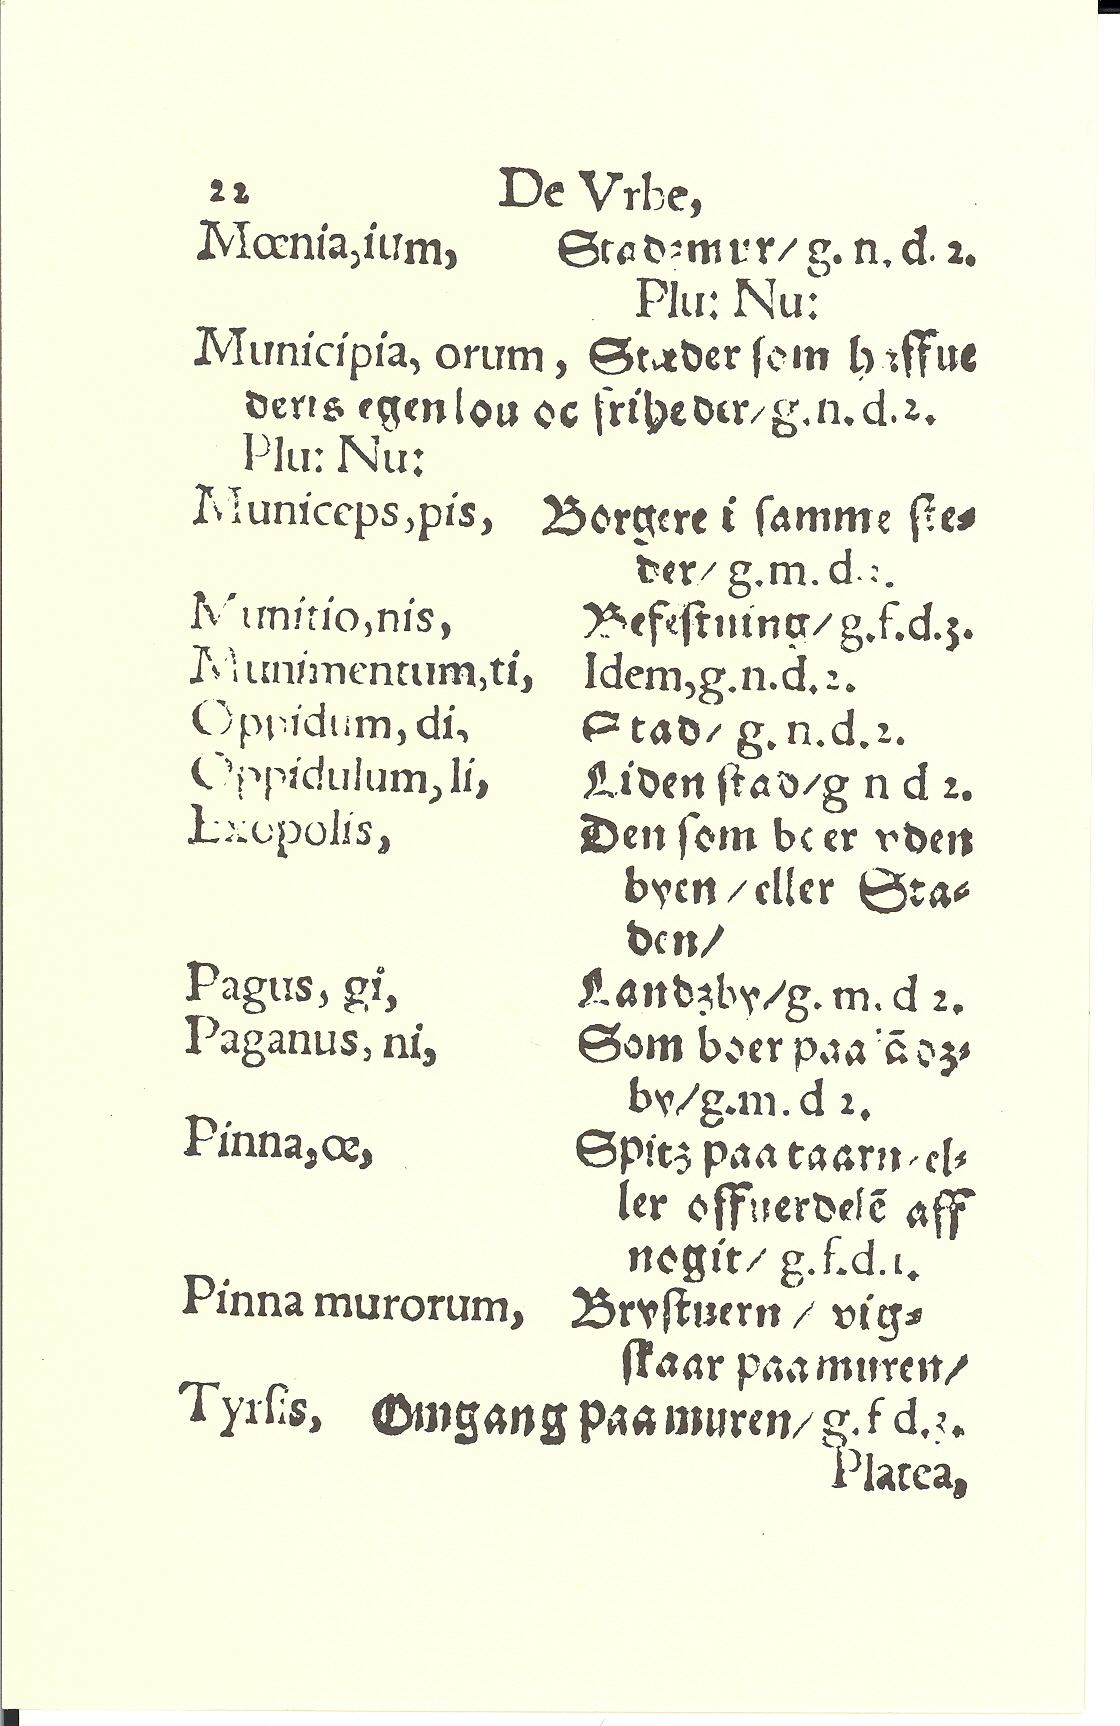 22 De Vrbe,
Mœnia,ium, Stadzmur/ g. n. d. 2.
Plu: Nu:
Municipia, orum, Stæder som haffue
deris egen lou oc friheder/ g.n.d.2.
Plu: Nu:
Municeps,pis, Borgere i samme ste⸗
der/ g.m.d.
Munitio,nis, Befestning/ g.f.d.3.
Munimentum,ti, Idem,g.n.d.2.
Oppidum, di, Stad/ g.n.d.2.
Oppidulum,li, Liden stad/g n d 2.
Exopolis, Den som boer vden
byen /eller Sta⸗
den/
Pagus, gi, Landzby/g. m. d 2.
Paganus, ni, Som boer paa lãdz⸗
by/g.m. d 2.
Pinna,œ, Spitz paa taarn/ el⸗
ler offuerdelẽ aff
nogit/ g.f.d.1.
Pinna murorum, Brystuern / vig⸗
skaar paa muren/
Tyrsis, Omgang paa muren/ g.f d.3.
Platea,